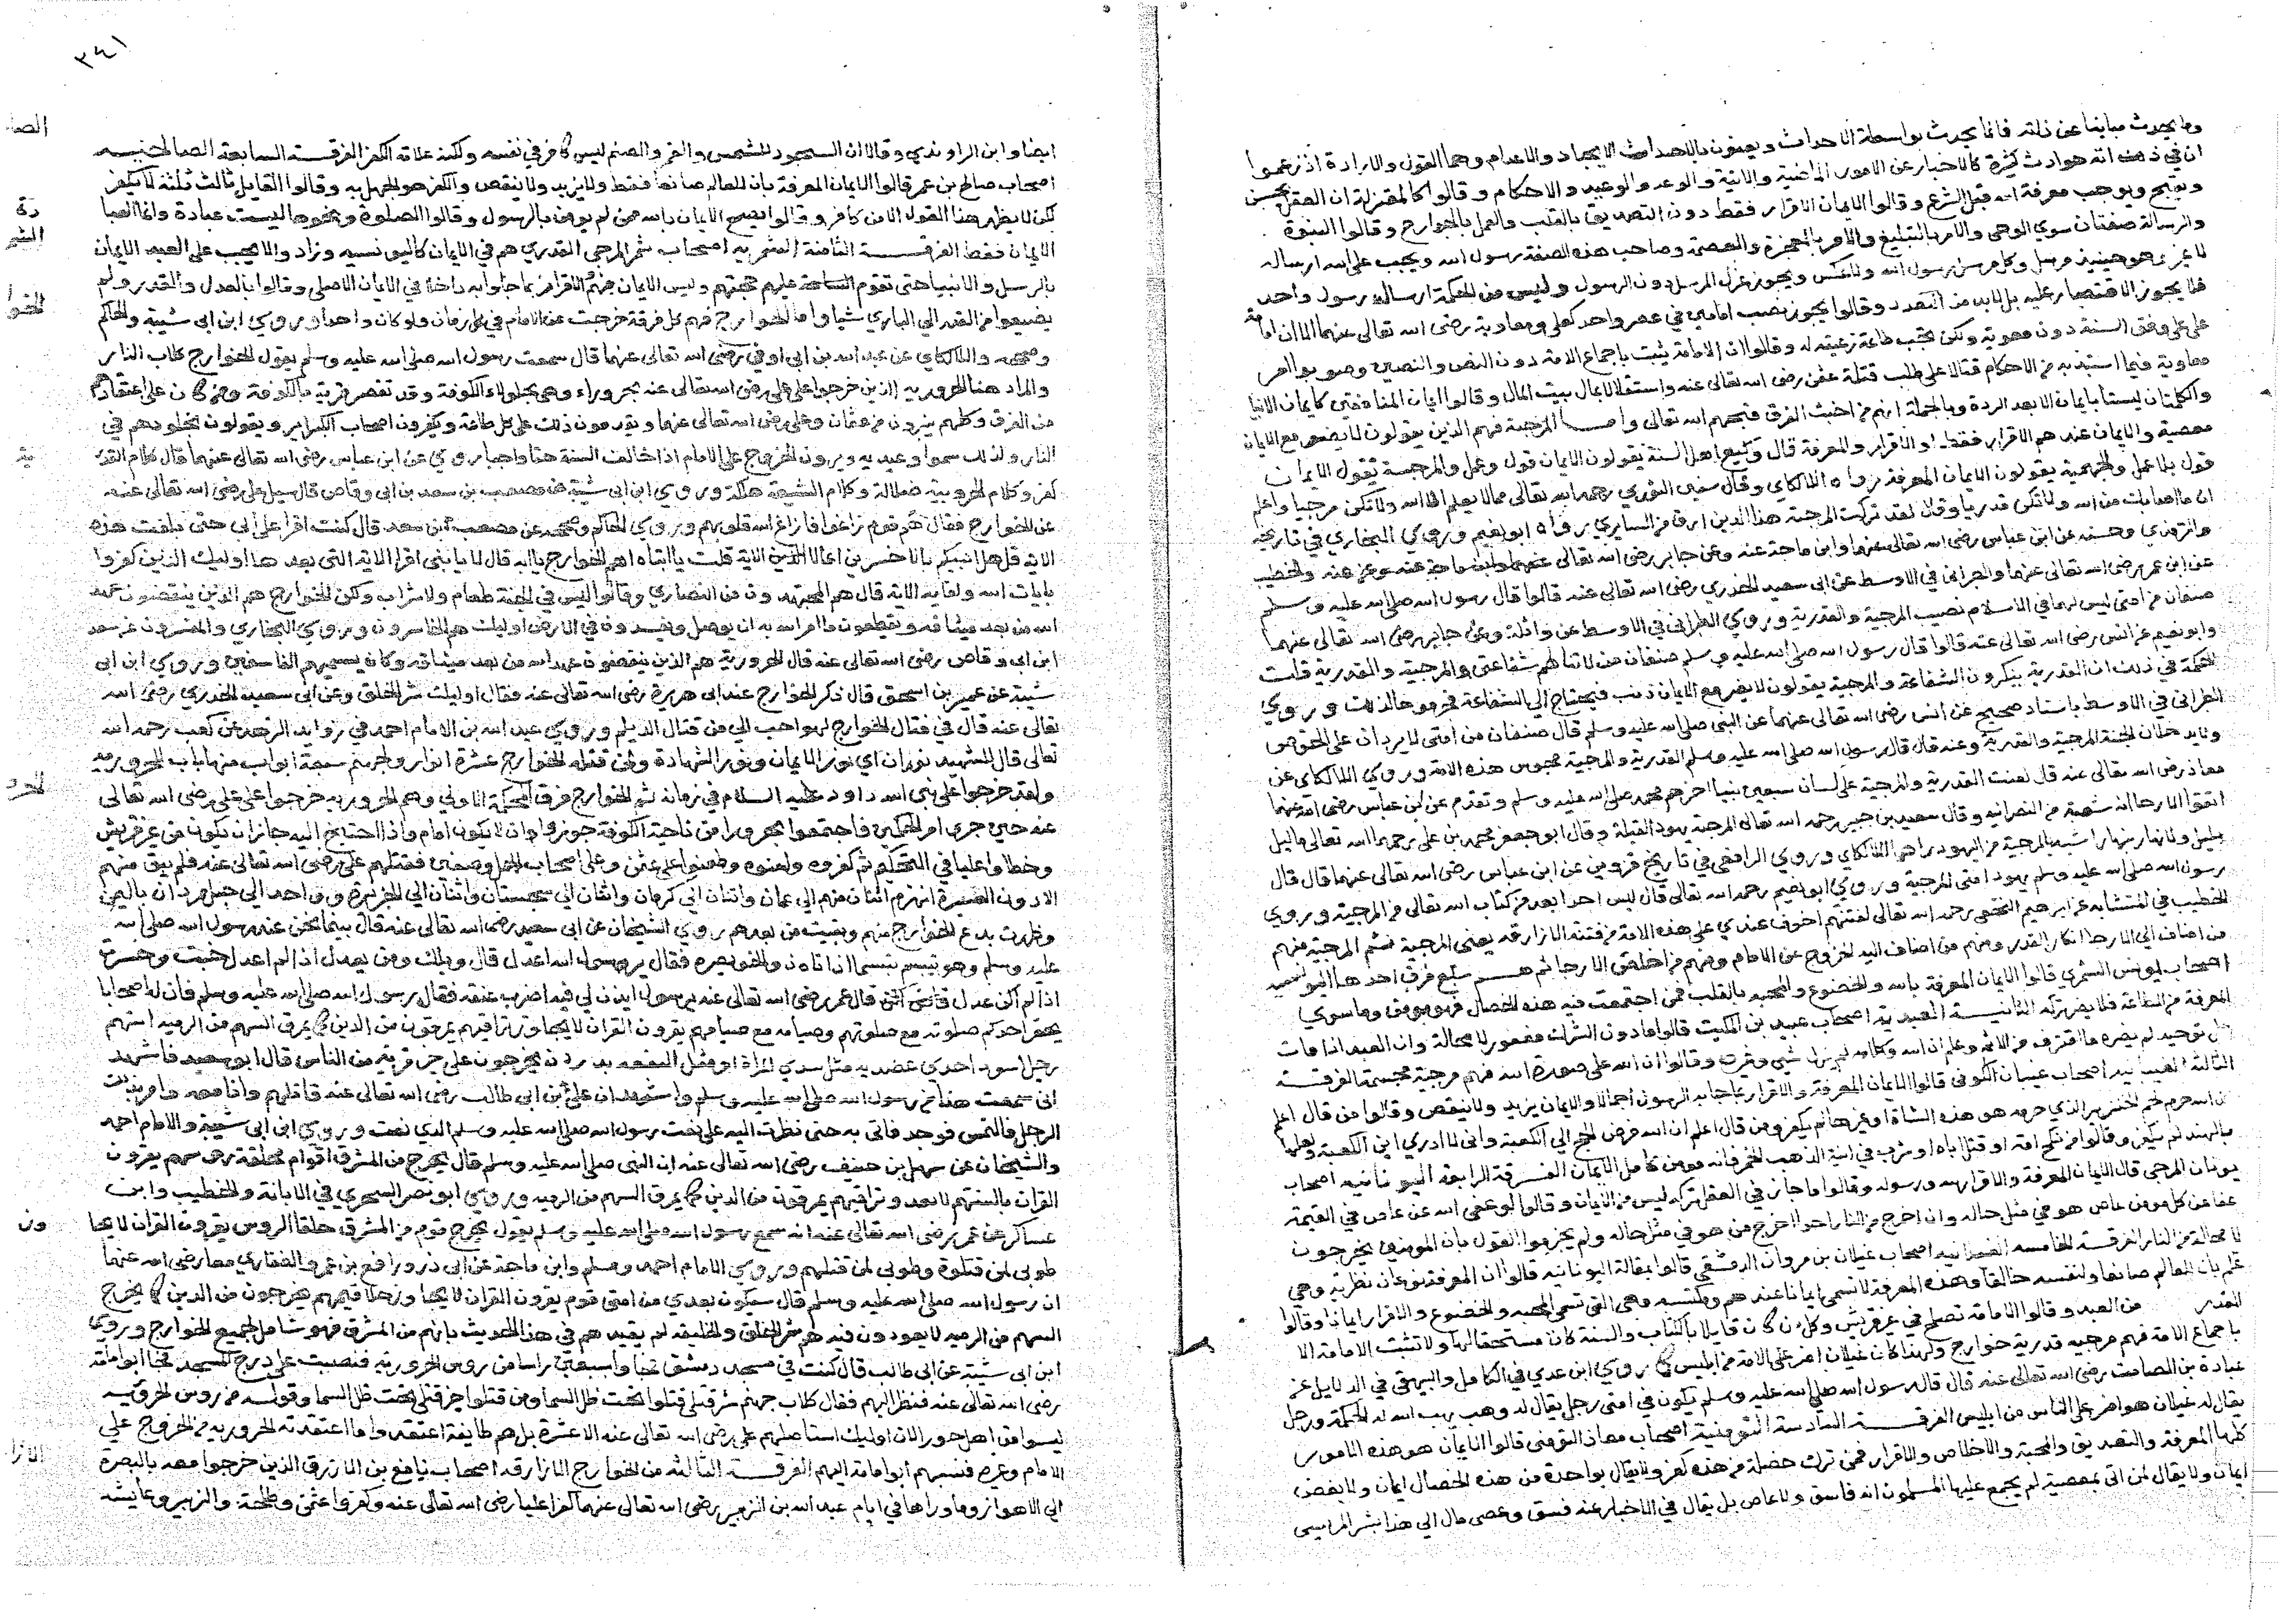 وما يحدث مباينا عن ذاته فانما يحدث بواسطة الاحداث ويعنون بالاحداث الايجاد والاعدام وهما القول والارادة اذ زعموا
ان في ذات الله حوادث كثيرة كالاخبار عن الامور الماضية والاتية والوعد والوعيد والاحكام وقالوا كالمعتزلة ان العقل يحسن
ويقبح ويوجب معرفة الله قبل الشرع وقالوا الايمان الاقرار فقط دون التصديق بالقلب والعمل بالجوارح وقالوا النبوة
والرسالة صفتان سوي الوحي والامر بالتبليغ والامر بالمعجزة والعصمة وصاحب هذه الصفة رسول الله ويجب على الله ارساله
لا غير وهو حينيذ مرسل وكل مرسل رسول الله ولا عكس ويجوز عزل المرسل دون الرسول وليس من الحكمة ارسال رسول واحد
فلا يجوز الاقتصار عليه بل لا بد من التعدد وقالوا يجوز نصب امامين في عصر واحد كعلي ومعاوية رضى الله تعالى عنهما الا ان امامة
علي على وفق السنة دون معوية ولكن يجب طاعة رعيته له وقالوا ان الامامة يثبت باجماع الامة دون النص والنصيص وصوبوا امر
معاوية فيما استبد به من الاحكام قتالا على طلب قتلة عثمن رضى الله تعالى عنه واستقلالا بمال بيت المال وقالوا ايمان المنافقين كايمان الانبيا
والكلمتان ليستا بايمان الا بعد الردة وبالجملة انهم من اخبث الفرق قبحهم الله تعالى واما المرجية فهم الذين يقولون لا يضر مع الايمان
معصية والايمان عندهم الاقرار فقط او الاقرار والمعرفة قال وكيع اهل السنة يقولون الايمان قول وعمل والمرجية تقول الايمان
قول بلا عمل والجهمية يقولون الايمان المعرفة رواه اللالكاي وقال سفين الثوري رحمه الله تعالى
ان ما اصابك من الله ولا تكن قدريا وقال لقد تركت المرجية هذا الدين ارق من السابري رواه ابو نعيم وروي البخاري في تاريخه
والترمذي وحسنه عن ابن عباس رضى الله تعالى عنهما وابن ماجة عنه وعن جابر رضى الله تعالى عنهما والخطيب
عن ابن عمر رضى الله تعالى عنهما والطبراني في الاوسط عن ابى سعيد الخدري رضى الله تعالى عنه قالوا قال رسول الله صلى الله عليه وسلم
صنفان من امتى ليس لهما في الاسلام نصيب المرجية والقدرية وروي الطبراني في الاوسط عن واثلة وعن جابر رضى الله تعالى عنهما
وابو نعيم عن انس رضى الله تعالى عنه قالوا قال رسول الله صلى الله عليه وسلم صنفان من لا تنالهم شفاعتى المرجية والقدرية قلت
الحكمة في ذلك ان القدرية ينكرون الشفاعة والمرجية يقولون لا يضر مع الايمان ذنب فيحتاج الى الشفاعة فحرموها لذلك وروي
الطبراني في الاوسط باسناد صحيح عن انس رضى الله تعالى عنهما عن النبى صلى الله عليه وسلم قال صنفان من امتى لا يردان على الحوض
ولا يدخلان الجنة المرجية والقدرية وعنه قال قال رسول الله صلى الله عليه وسلم القدرية والمرجية مجوس هذه الامة وروي اللالكاي عن
معاذ رضى الله تعالى عنه قال لعنت القدرية والمرجية على لسان سبعين نبيا اخرهم محمد صلى الله عليه وسلم وتقدم عن ابن عباس رضى الله عنهما
اتقوا الارجا انه شعبة من النصرانيه وقال سعيد بن جبير رحمه الله تعالى المرجية يهود القبلة وقال ابو جعفر محمد بن على رحمهما الله تعالى ما ليل
بليل ولا نهار بنهار اشبه بالمرجية من اليهود رواهم اللالكاي وروي الرافعي في تاريخ قزوين عن ابن عباس رضى الله تعالى عنهما قال قال
رسول الله صلى الله عليه وسلم يهود امتى المرجية وروي ابو نعيم رحمه الله تعالى قال ليس احد ابعد من كتاب الله تعالى من المرجية وروي
الخطيب في المتشابه عن ابرهيم النخعي رحمه الله تعالى لفتنتهم اخوف عندي على هذه الامة من فتنة الازارقه يعنى المرجية ثم المرجية منهم
من اضاف الى الارجا انكار القدر ومنهم من اضاف اليه الخروج عن الامام ومنهم من اخلص الارجا ثم هم سبع فرق احدها اليونسيه
اصحاب يونس الشمري قالوا الايمان المعرفة بالله والخضوع والمحبه بالقلب فمن اجتمعت فيه هذه الخصال فهو مومن وما سوي
المعرفة من الطاعة فلا يضر تركه الثانيـة العبيدية اصحاب عبيد بن المكيت قالوا ما دون الشرك مغفور لا محالة وان العبد اذا مات
على توحيد لم يضره ما اقترف من الاثم وعلم ان الله وكلامه لم يزل شيى وقالوا ان الله على صورة الله فهم مرجية مجسمة الفرقـة
الثالثة الغسانيه اصحاب غسان الكوفي قالوا الايمان المعرفة والاقرار بما جا به الرسول اجمالا والايمان يزيد ولا ينقص وقالوا من قال اعلم
ان الله حرم لحم الخنزير الذي حرمه هو هذه الشاة او غيرها لم يكفر ومن قال اعلم ان الله فرض الحج الى الكعبة واني لا ادري اين الكعبة ولعلها
بالهند لم يكفر وقالوا من نكح امه او قتل اباه او شرب في انية الذهب الخمر فانه مومن كامل الايمان الفـرقة الرابعة اليونانيه اصحاب
يونان المرجى قال الايمان المعرفة والاقرار بالله ورسوله وقالوا ما جاز في العقل تركه ليس من الايمان وقالوا لو عفى الله عن عاص في القيمة
عفا عن كل مومن عاص هو في مثل حاله وان اخرج من النار احدا اخرج من هو في مثل حاله ولم يجزموا القول بان المومنين يخرجون
لا محالة من النار الفرقـة الخامسه الغيلانيه اصحاب غيلان بن مروان الدمشقي قالوا بمقالة اليونانيه قالوا ان المعرفة نوعان نظرية وهي
علم بان للعالم صانعا ولنفسه خالقا وهذه المعرفة لا تسمى ايمانا عندهم ومكتسبه وهي التى تسمى المحبه والخضوع والاقرار ايمانا وقالوا
القدر من العبد وقالوا الامامة تصلح في غير قريش وكل من كان قايلا بالكتاب والسنة كان مستحقا لها ولا تثبت الامامة الا
باجماع الامة فهم مرجيه قدرية خوارج ولهذا كان غيلان اضر على الامة من ابليس كما روي ابن عدي في الكامل والبيهقي في الدلايل عن
عبادة بن الصامت رضى الله تعالى عنه قال قال رسول الله صلى الله عليه وسلم يكون في امتى رجل يقال له وهب يهب الله له الحكمة ورجل
يقال له غيلان هو اضر على الناس من ابليس الفرقـة السادسة الثومنية اصحاب معاذ الثومنى قالوا الايمان هو هذه الامور
كلها المعرفة والتصديق والمحبة والاخلاص والاقرار فمن ترك خصلة من هذه كفر ولا يقال بواحدة من هذه الخصال ايمان ولا بعض
ايمان ولا يقال لمن اتى بمعصية لم يجمع عليها المسلمون انه فاسق ولا عاص بل يقال في الاخبار عنه فسق وعصى مال الى هذا بشر المريسى
٣٤١
ايضا وابن الراوندي وقالا ان السجود للشمس والقمر والصنم ليس كافر في نفسه ولكنه علامة الكفر الفرقـة السابعة الصالحيـه
اصحاب صالح بن عمر قالوا الايمان المعرفة بان للعالم صانعا فقط ولا يزيد ولا ينقص والكفر هو الجهل به وقالوا القايل ثالث ثلثة لا يكفر
لكن لا يظهر هذا القول الا من كافر وقالوا يصح الايمان بالله ممن لم يومن بالرسول وقالوا الصلوة ونحوها ليست عبادة وانما العبا
الايمان فقط الفرقـة الثامنة الشمريه اصحاب شمر المرجى القدري هم في الايمان كاليونسيه وزاد والا يجب على العبد الايمان
بالرسل والانبيا حتى تقوم عليهم حجتهم وليس الايمان منهم الاقرار بما جاوا به داخلا في الايمان الاصلي وقالوا بالعدل والقدر ولم
يضيعوا من القدر الى الباري شيا واما الخوارج فهم كل فرقة خرجت عن الامام في كل زمان ولو كان واحدا وروي ابن ابى شيبة والحاكم
وصححه واللالكاي عن عبد الله بن ابى اوفى رضى الله تعالى عنهما قال سمعت رسول الله صلى الله عليه وسلم يقول الخوارج كلاب النار
والمراد هنا الحروريه الذين خرجوا على على رضى الله تعالى عنه بحروراء وهى بجلولاء الكوفة وقد تقصر قرية بالكوفة ومن كان على اعتقادهم
من الفرق وكلهم يتبرون من عثمان وعلى رضى الله تعالى عنهما ويقدمون ذلك على كل طاعة ويكفرون اصحاب الكباير ويقولون بخلودهم في
النار ولذلك سموا وعيديه ويرون الخروج على الامام اذا خالف السنة حقا واجبا روي عن ابن عباس رضى الله تعالى عنهما قال كلام القدر
كفر وكلام الحرورية ضلالة وكلام الشيعة هلكة وروي ابن ابى شيبة عن مصعب بن سعد بن ابى وقاص قال سيل على رضى الله تعالى عنه
عن الخوارج فقال هم قوم زاغوا فازاغ الله قلوبهم وروي الحاكم وصححه عن مصعب بن سعد قال كنت اقرا على ابى حتى بلغت هذه
الاية قل هل انبيكم بالاخسرين اعمالا الذين الاية قلت يا ابتاه اهم الخوارج يا ابه قال لا يا بنى اقرا الاية التى بعدها اوليك الذين كفروا
بايات الله ولقايه الاية قال هم من النصاري وقالوا ليس في الجنة طعام ولا شراب ولكن الخوارج هم الذين ينقضون عهد
الله من بعد ميثاقه ويقطعون ما امر الله به ان يوصل ويفسدون في الارض اوليك هم الخاسرون وروي البخاري والمفسرون عن سعد
ابن ابى وقاص رضى الله تعالى عنه قال الحرورية هم الذين ينقضون عهد الله من بعد ميثاقه وكان يسميهم الفاسقين وروي ابن ابى
شيبة عن عمير بن اسحق قال ذكر الخوارج عند ابى هريرة رضى الله تعالى عنه فقال اوليك شر الخلق وعن ابى سعيد الخدري رضى الله
تعالى عنه قال في قتال الخوارج لهو احب الي من قتال الديلم وروي عبد الله بن الامام احمد في زوايد الزهد عن كعب رحمه الله
تعالى قال للشهيد نوران اي نور الايمان ونور الشهادة ولمن قتله الخوارج عشرة انوار ولجهنم سبعة ابواب منها باب للحروريه
ولقد خرجوا على نبى الله داود عليه السلام في زمانه ثم الخوارج فرق المحكمة الاولي وهم الحروريه خرجوا على على رضى الله تعالى
عنه حين جري امر الحكمين فاجتمعوا بحرورا من ناحية الكوفة جوزوا ان لا يكون امام واذا احتيج اليه جاز ان يكون من غير قريش
وخطاوا عليا في التحكيم ثم كفروه ولعنوه وطعنوا على عثمن وعلى اصحاب الجمل وصفين فقتلهم على رضى الله تعالى عنه فلم يبق منهم
الا دون العشرة انهزم اثنان منهم الى عمان واثنان الى كرمان واثنان الى سجستان واثنان الى الجزيرة وواحد الى باليمن
وظهرت بدع الخوارج منهم وبقيت من بعدهم روي الشيخان عن ابى سعيد رضى الله تعالى عنه قال بينما نحن عند رسول الله صلى الله
عليه وسلم وهو يقسم قسما اذ اتاه ذو الخويصره فقال يا رسول الله اعدل قال ويلك ومن يعدل اذا لم اعدل خبت وخسرت
اذا لم اكن عدل قال عمر رضى الله تعالى عنه يا رسول الله ايذن لي فيه اضرب عنقه فقال رسول الله صلى الله عليه وسلم فان له اصحابا
يحقر احدكم صلوته مع صلوتهم وصيامه مع صيامهم يقرون القران لا يجاوز تراقيهم يمرقون من الدين كما يمرق السهم من الرميه ايتهم
رجل اسود احدي عضديه مثل ثدي المراة او مثل البضعه تدردر يخرجون على حين فرقة من الناس قال ابو سعيد فاشهد
انى سمعت هذا من رسول الله صلى الله عليه وسلم واشهد ان على بن ابى طالب رضى الله تعالى عنه قاتلهم وانا معه وامر بذلك
الرجل فالتمس فوجد فاتى به حتى نظرت اليه على نعت رسول الله صلى الله عليه وسلم الذي نعت وروي ابن ابى شيبة والامام احمد
والشيخان عن سهل بن حنيف رضى الله تعالى عنه ان النبى صلى الله عليه وسلم قال يخرج من المشرق اقوام محلقة روسهم يقرون
القران بالسنتهم لا يعدو تراقيهم يمرقون من الدين كما يمرق السهم من الرميه وروي ابو نصر السجزي في الابانة والخطيب وابن
عساكر عن عمر رضى الله تعالى عنه انه سمع رسول الله صلى الله عليه وسلم يقول يخرج قوم من المشرق حلقا الروس يقرون القران لا يجا
طوبى لمن قتلوه وطوبى لمن قتلهم وروي الامام احمد ومسلم وابن ماجة عن ابى ذر ورافع بن عمرو الغفاري معا رضى الله عنهما
ان رسول الله صلى الله عليه وسلم قال سيكون بعدي من امتى قوم يقرون القران لا يجاوز حلاقيمهم يخرجون من الدين كما يخرج
السهم من الرميه لا يعودون فيه هم شر الخلق والخليقه لم يقيدهم في هذا الحديث بانهم من المشرق فهو شامل لجميع الخوارج وروي
ابن ابى شيبة عن ابى طالب قال كنت في مسجد دمشق فجاوا بسبعين راسا من روس الحرورية فنصبت على درج المسجد فجا ابو امامة
رضى الله تعالى عنه فنظر اليهم فقال كلاب جهنم شر قتلى قتلوا تحت ظل السما ومن قتلوا خير قتلى تحت ظل السما وقوله من روس الحروريـه
ليسوا من اهل حورا لان اوليك استاصلهم على رضى الله تعالى عنه الا عشرة بل هم طايفة اعتقدوا ما اعتقدته الحروريه من الخروج علي
الامام وغيره فنسبهم ابو امامة اليهم الفرقـة الثالثه من الخوارج الازارقه اصحاب نافع بن الازرق الذين خرجوا معه بالبصرة
الى الاهواز وما وراها في ايام عبد الله بن الزبير رضى الله تعالى عنهما كفرا عليا رضى الله تعالى عنه وكفروا عثمن وطلحة والزبير وعايشه
الصا
دة
الشر
الخوا
ية
الحرو
ون
الازا